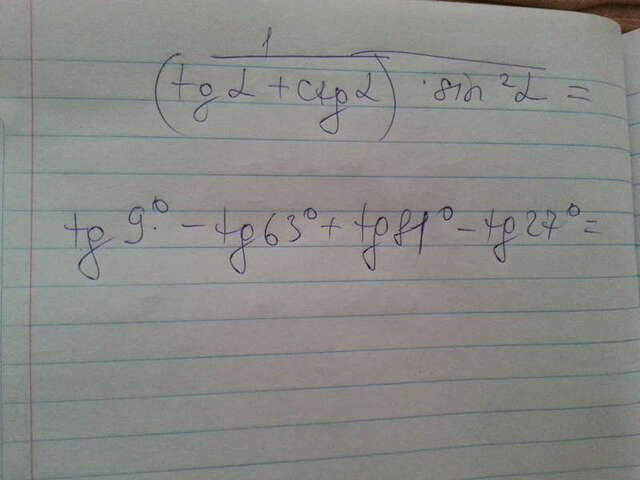 1
(tg α + ctg α) · sin ²α =
tg 9.° − tg 63° + tg 81° − tg 27° =